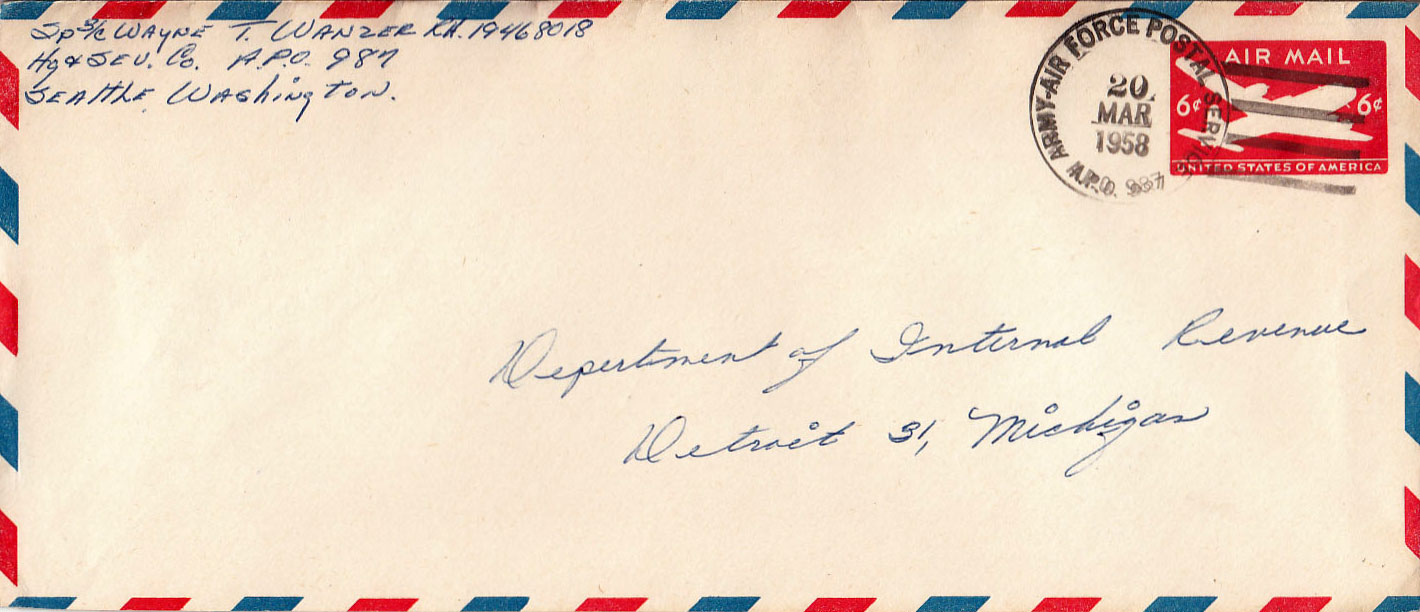 Sp 3/c WAYNE T. WANZER RA. 19468018
Hq & SEV. Co. A.P.O. 987
SEAttLE WAShington.
ARMY-AIR FORCE POSTAL SERVICE
20
MAR
1958
A.P.O. 987
AIR MAIL
6¢ 6¢
UNITED STATES OF AMERICA
Depertment of Internal Revenue
Detroit 31, Michigan